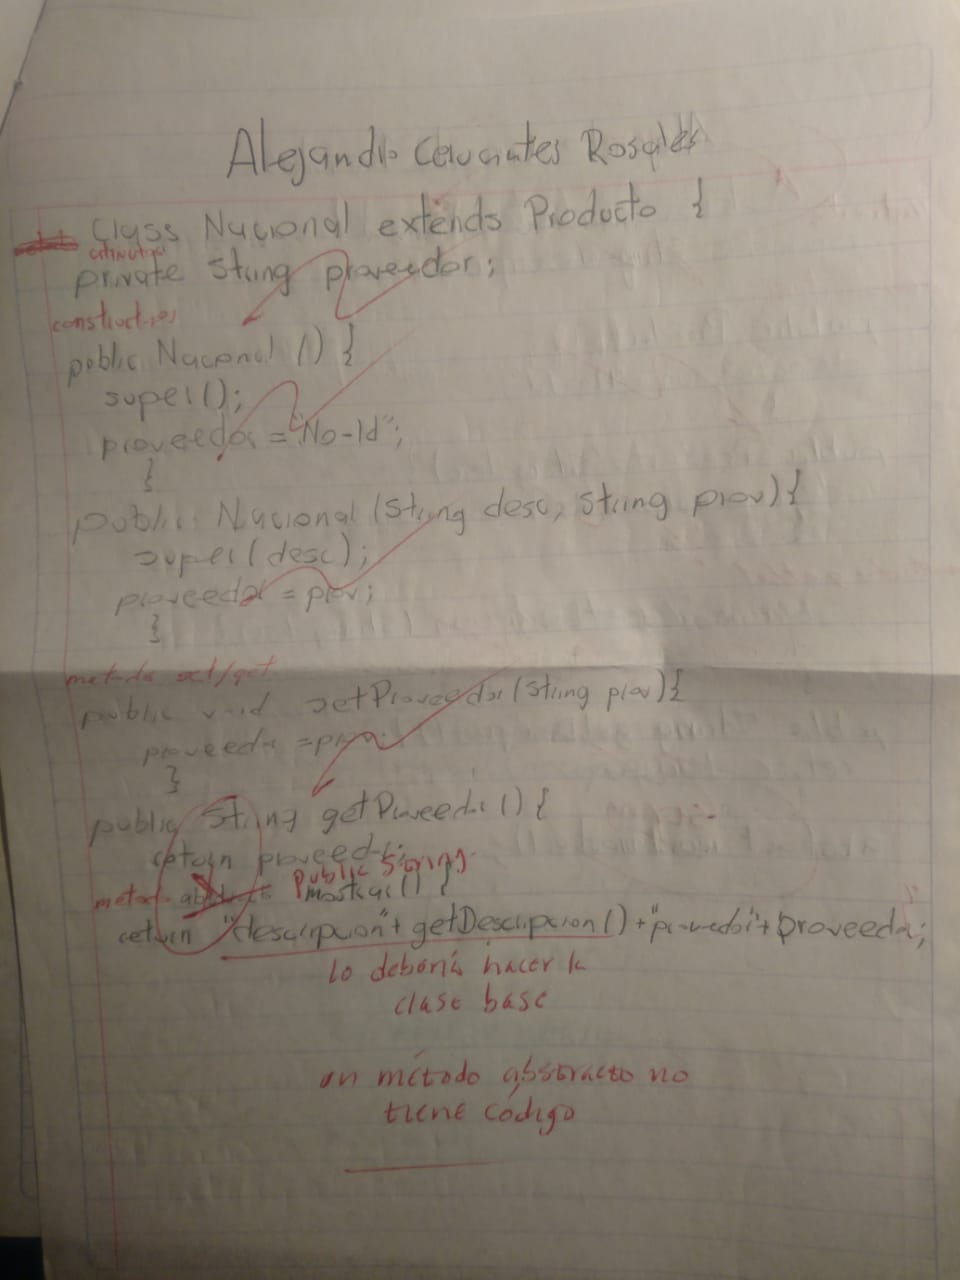 Alejandro Cervantes Rosales
Class Nacional extends Producto {
private String proveedor;
constructores
public Nacional () {
super();
proveedor = "No-Id";
}
public Nacional (String desc, String prov) {
super(desc);
proveedor = prov;
}
metodo set/get
public void setProveedor (String prov) {
proveedor = prov;
}
public String getProveedor () {
return proveedor;
public String
metodo mostrar() {
return "descripcion" + getDescripcion() + "proveedor" + proveedor;
lo debería hacer la
clase base
un método abstracto no
tiene código